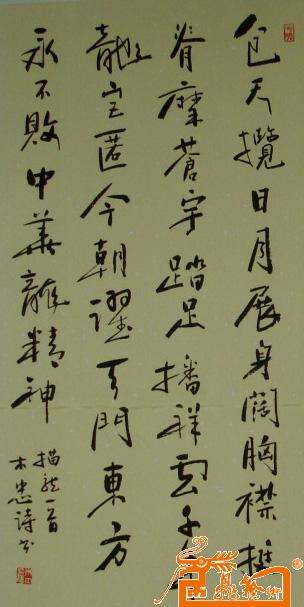 包天攬日月展身闊胸襟挺
脊摩蒼宇踏足播祥雲千
龍宫匿今朝躍天門東方
永不敗中華龍精神
描龍一首
木忠詩书